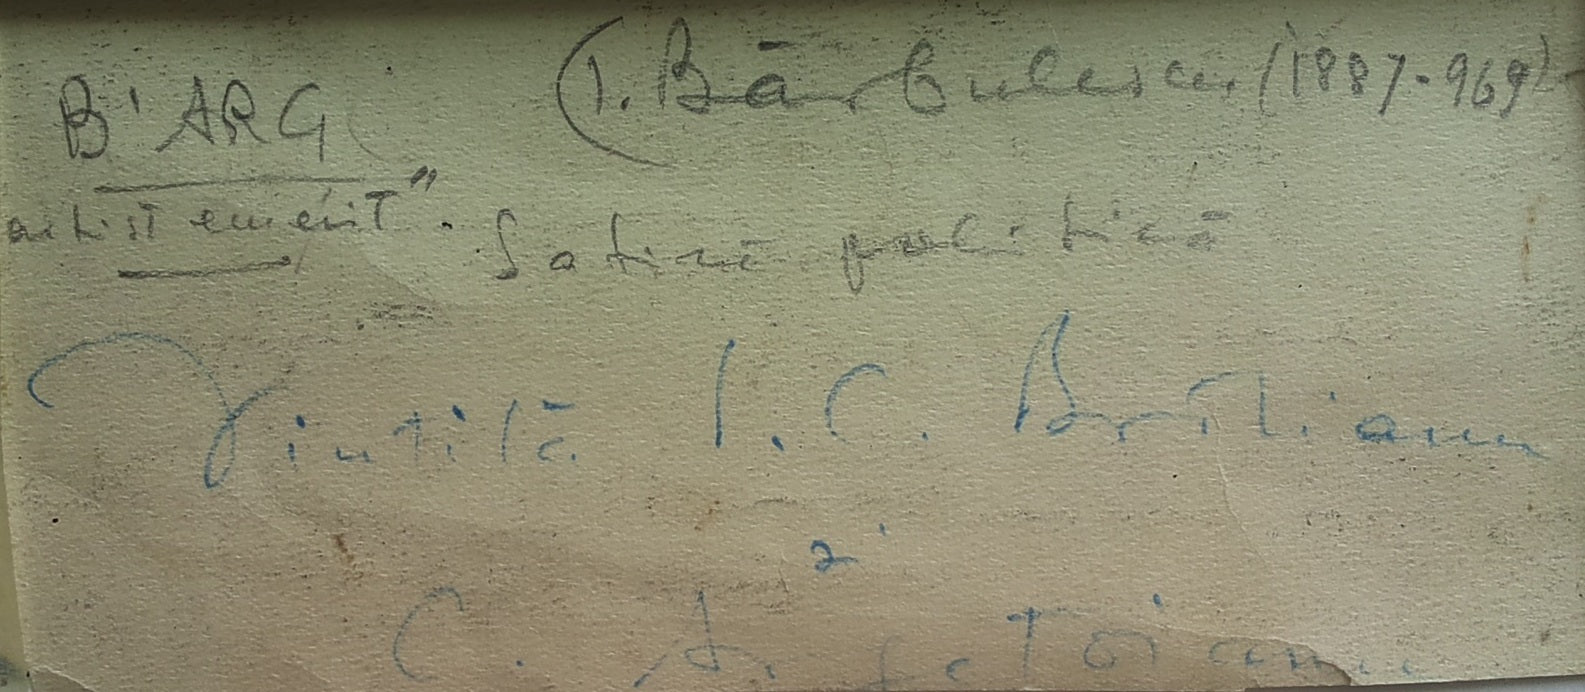 B'ARG (I. Bărbulescu (1887-969)
artist emerit" . Satiră politică
Vintilă I. C. Brătianu
și
C. Argetoianu